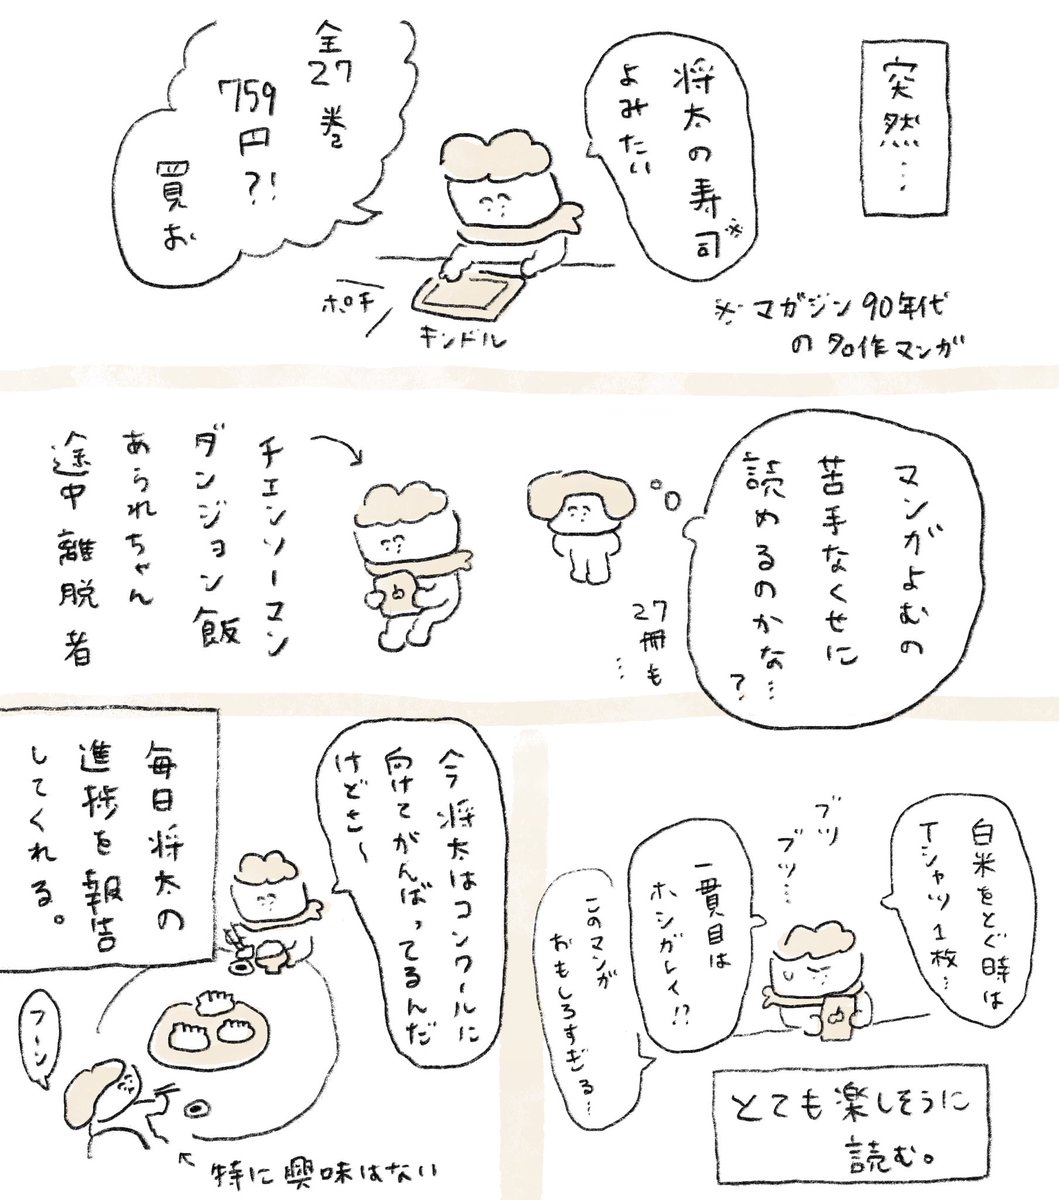 突然…
将太の寿司※
よみたい
※マガジン90年代
の名作マンガ
全27巻
759円?!
買お
ポチ
キンドル
マンガよむの
苦手なくせに
読めるのかな…?
27冊も…
チェンソーマン
ダンジョン飯
あられちゃん
途中離脱者
白米をとぐ時は
Tシャツ1枚…
ブツ
ブツ…
一貫目は
ホシガレイ!?
このマンガ
おもしろすぎる…
とても楽しそうに
読む。
今将太はコンクールに
向けてがんばってるんだ
けどさ〜
毎日将太の
進捗を報告
してくれる。
フーン
特に興味はない